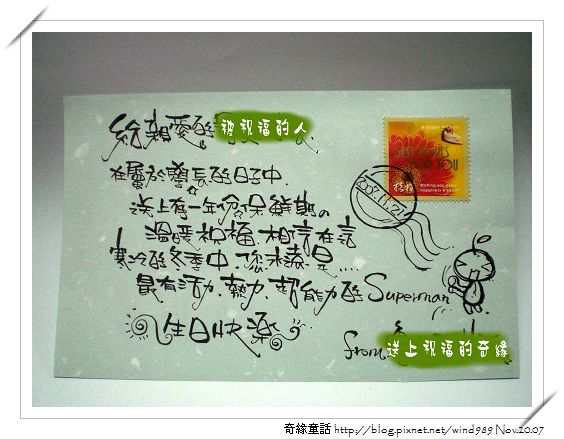 給親愛的被祝福的人
在屬於壽星的日子中
送上有一年份保鮮期の
溫暖祝福.相信在這
寒冷的冬季中.您未落是....
最有活力.熱力.超能力的Superman
生日快樂
from 送上祝福的奇緣
2007.11.27
奇緣童話 http://blog.pixnet.net/wind989 Nov.20.07